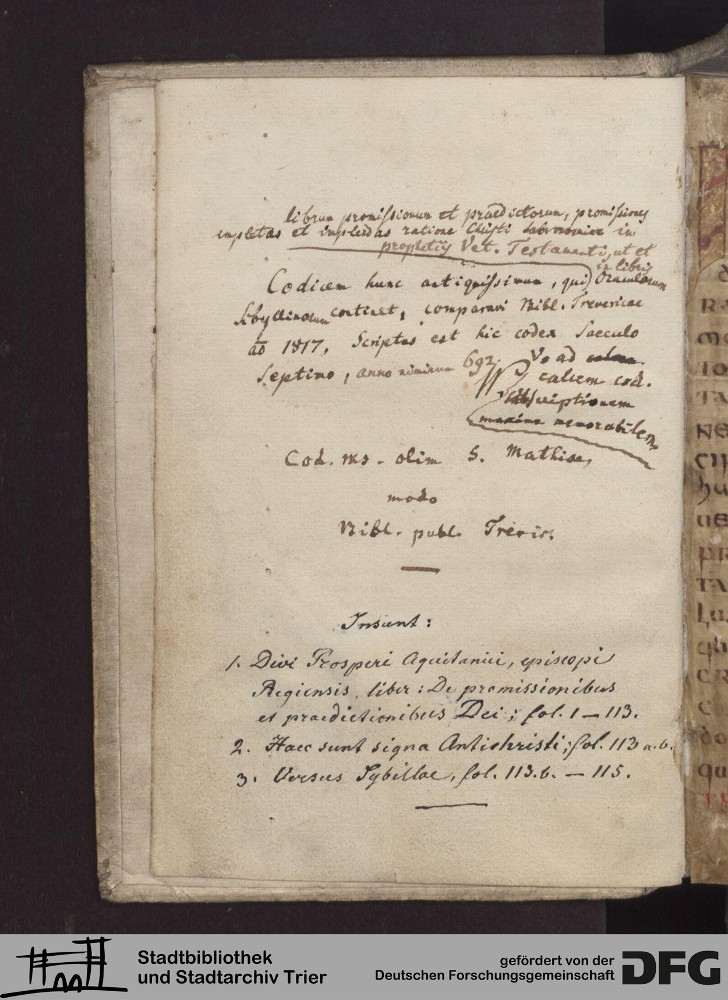 librum promissionum et praedictorum, promissiones
impletas et implendas ratione Christi in
prophetiis Vet. Testamenti, ut et
in libris
Codicem hunc antiquissimum, qui Oraculorum
Sibyllinorum continet, comparavi Bibl. Trevericae
ao 1817, Scriptus est hic codex Saeculo
Septimo, anno nimirum 692. Vo ad
calcem cod.
subscriptionem
maxime memorabilem
Cod. ms. olim S. Mathiae,
modo
Bibl. publ. Trevir.
Insunt:
1. Divi Prosperi Aquitanici, episcopi
Regiensis liber: De promissionibus
et praedictionibus Dei; fol. 1 — 113.
2. Haec sunt signa Antichristi; fol. 113 a. b.
3. Versus Sybillae, fol. 113. b. — 115.
Stadtbibliothek
und Stadtarchiv Trier
gefördert von der
Deutschen Forschungsgemeinschaft
DFG